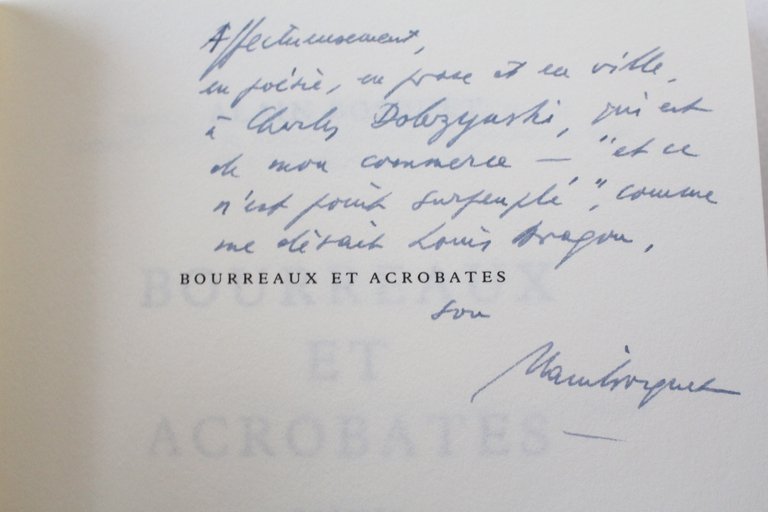 Affectueusement,
en poésie, en prose et en ville,
à Charles Dobrzynski, qui est
de mon commerce — "et ce
n'est point surpeuplé", comme
me disait Louis Aragon,
BOURREAUX ET ACROBATES
son
Alain Bosquet
BOURREAUX
ET
ACROBATES